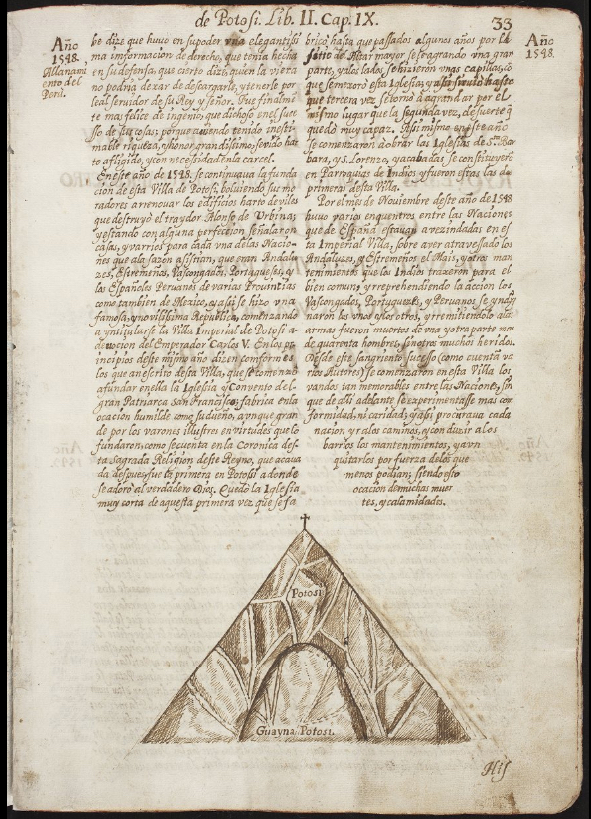 de Potosi. Lib. II. Cap. IX.
33
Año
1548.
Allanami
ento del
Perú.
be dize que huuo en su poder vna elegantisi
ma informacion de derecho, que tenia hecha
en su defensa, que cierto dize, quien la viera
no podria dexar de descargarle, y tenerle por
leal seruidor de su Rey y señor. Fue finalmẽ
te mas felice de ingenio, que dichoso en el suce
so de sus cosas, porque auiendo tenido inesti-
mable riqueza, y honor grandisimo, se vido har
to afligido, y con necesidad en la carcel.
En este año de 1548. se continuava la funda
cion de esta Villa de Potosi, boluiendo sus mo
radores a renouar los edificios harto de viles
que destruyò el traydor Alonso de Urbina,
y estando con alguna perfeccion, señalaron
casas, y varrios para cada vna de las Nacio-
nes que a la sazon asistian, que eran Andalu-
zes, Estremeños, Vascongados, Portugueses, y
los Españoles Peruanos de varias Prouintias
como tambien de Mexico, y asi se hizo vna
famosa, y novisima Republica, comenzando
a yntitularse la Villa Imperial de Potosi a-
devocion del Emperador Carlos V. En los pr
incipios deste mismo año dizen conformes
los que an escrito desta Villa, que se comenzò
a fundar en ella la Iglesia y Convento del-
gran Patriarca San Francisco, fabrica en la
ocacion humilde como su dueño, aunque gran
de por los varones illustres en virtudes que lo
fundaron, como se cuenta en la Coronica des-
ta sagrada Religion deste Reyno, que acaua
da despues, fue la primera en Potosi a donde
se adorò al verdadero Dios. Quedò la Iglesia
muy corta de aquesta primera vez que se fa
Año
1548.
bricò, hasta que pasados algunos años por la
sitio de Altar mayor se fue agrando vna gran
parte, y a los lados, se hizieron vnas capillas, cõ
que se mejorò esta Iglesia, y asi siruiò hasta
que tercera vez se tornò a agrandar por el
mismo lugar que la segunda vez, de suerte q̃
quedò muy capaz. Asi mismo en este año
se comenzaron a obrar las Iglesias de Sta. Bar
bara, y s. Lorenzo, y acabadas se constituyerõ
en Parroquias de Indios y fueron estas las de
primeras desta Villa.
Por el mes de Noviembre deste año de 1548
huuo varios enquentros entre las Naciones
que de España estavan avezindadas en es
ta Imperial Villa, sobre aver atravesado los
Andaluzes, y Estremeños el Mais, y otros man
tenimientos que los Indios traxeron para el
bien comun, y reprehendiendo la accion los
Vascongados, Portuguezes, y Peruanos se yndig
naron los vnos y los otros, y remitiendolo a las
armas fueron muertos de vna y otra parte mas
de quarenta hombres, sin otros muchos heridos.
Desde este sangriento suceso (como cuenta va
rios Autores) se comenzaron en esta Villa los
vandos tan memorables entre las Naciones, sin
que de alli adelante se experimentasse mas con
formidad, ni caridad, y asi procurava cada
nacion yr a los caminos, y conduzir a los
barrios los mantenimientos, y a vn
quitarlos por fuerza de los que
menos podian, siendo esto
ocacion de muchas muer
tes, y calamidades.
Potosi
Guayna Potosi.
His